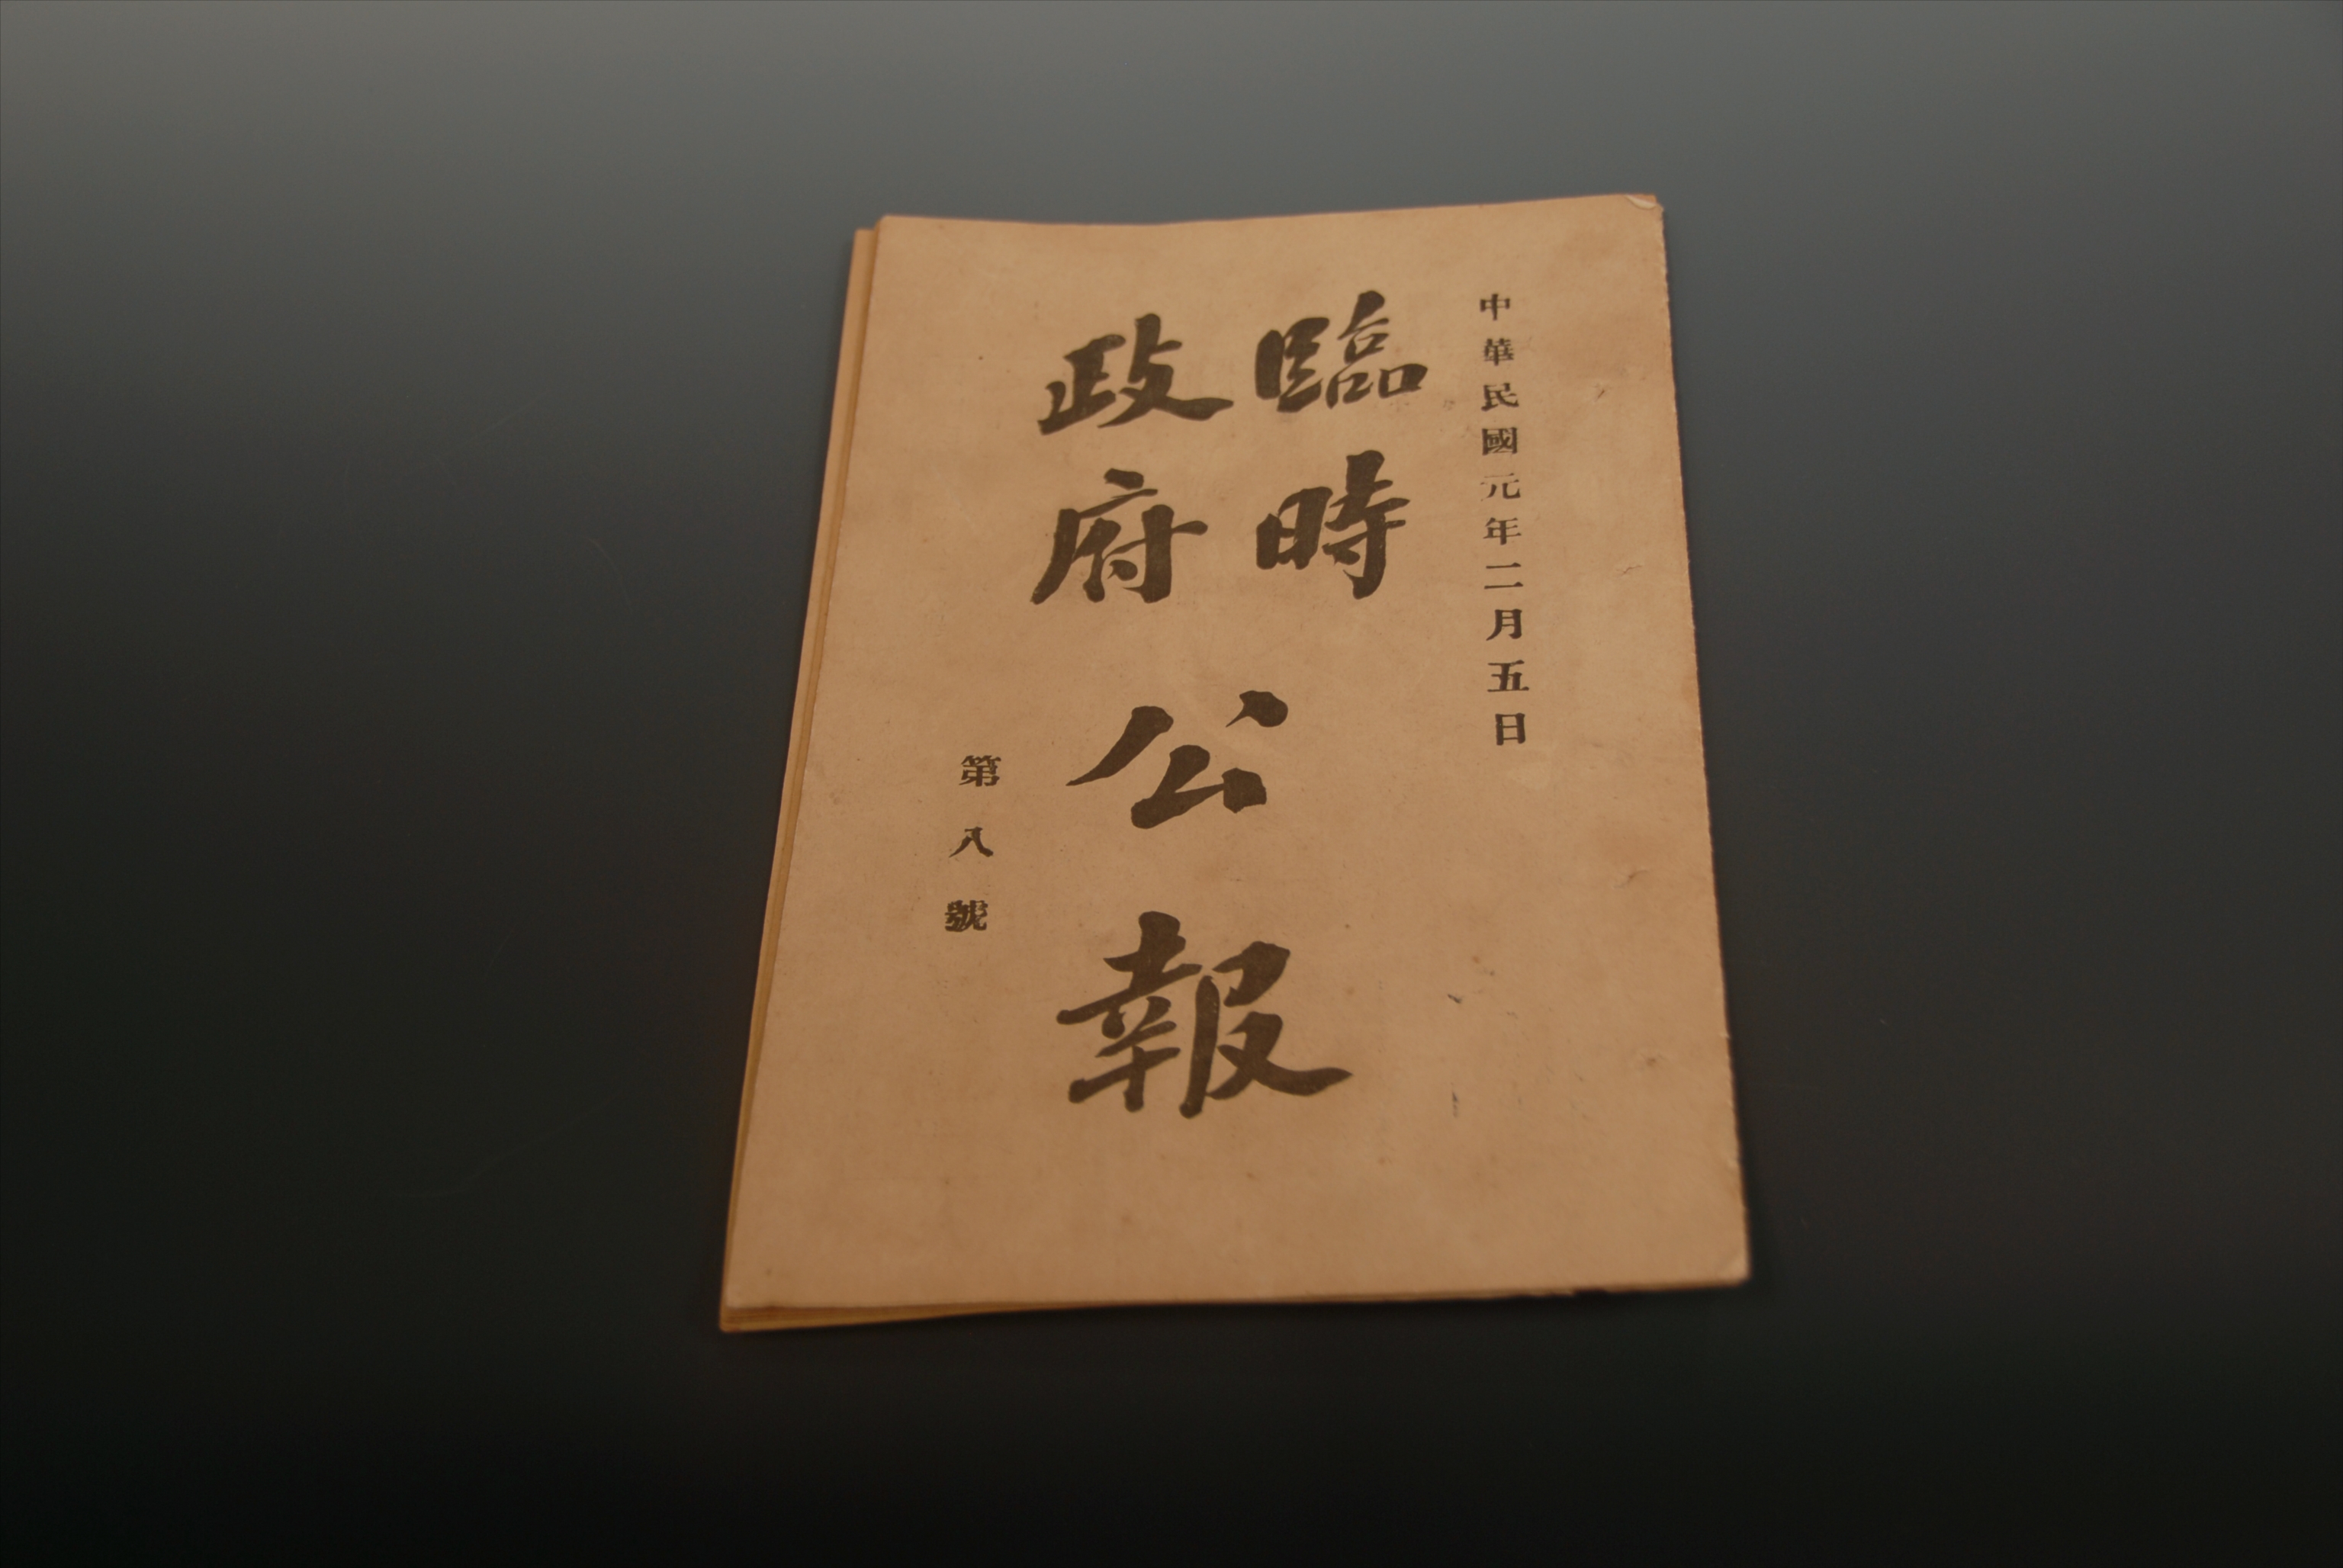 中華民國元年二月五日
臨時
政府
公報
第八號